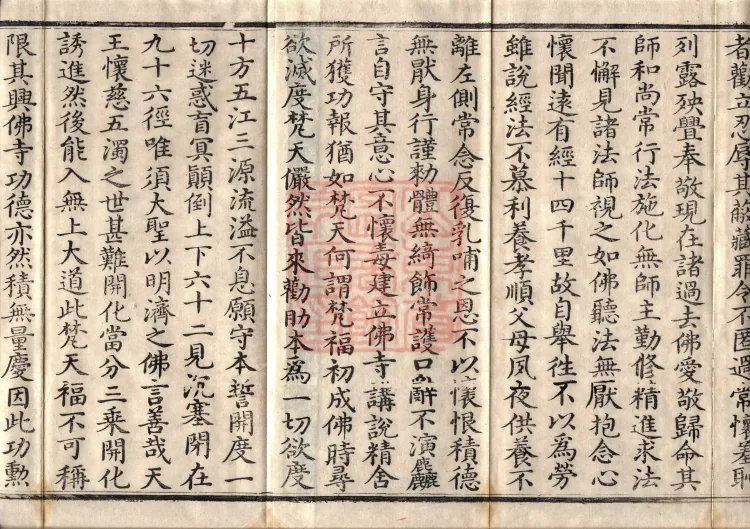 者勸立忍辱其前藏罪令不匿過常懷羞恥
列露殃舋奉敬現在諸過去佛愛敬歸命其
師和尚常行法施化無師主勤修精進求法
不懈見諸法師視之如佛聽法無厭抱念心
懷聞遠有經十四千里故自舉往不以為勞
雖說經法不慕利養孝順父母夙夜供養不
離左側常念反復乳哺之恩不以懷恨積德
無厭身行謹勑體無綺飾常護口辭不演麤
言自守其意心不懷毒建立佛寺講說精舍
所獲功報猶如梵天何謂梵福初成佛時尋
欲滅度梵天儼然皆來勸助本為一切欲度
十方五江三源流溢不息願守本誓開度一
切迷惑盲冥顛倒上下六十二見沉塞閉在
九十六徑唯須大聖以明濟之佛言善哉天
王懷慈五濁之世甚難開化當分三乘開化
誘進然後能入無上大道此梵天福不可稱
限其興佛寺功德亦然積無量慶因此功勳